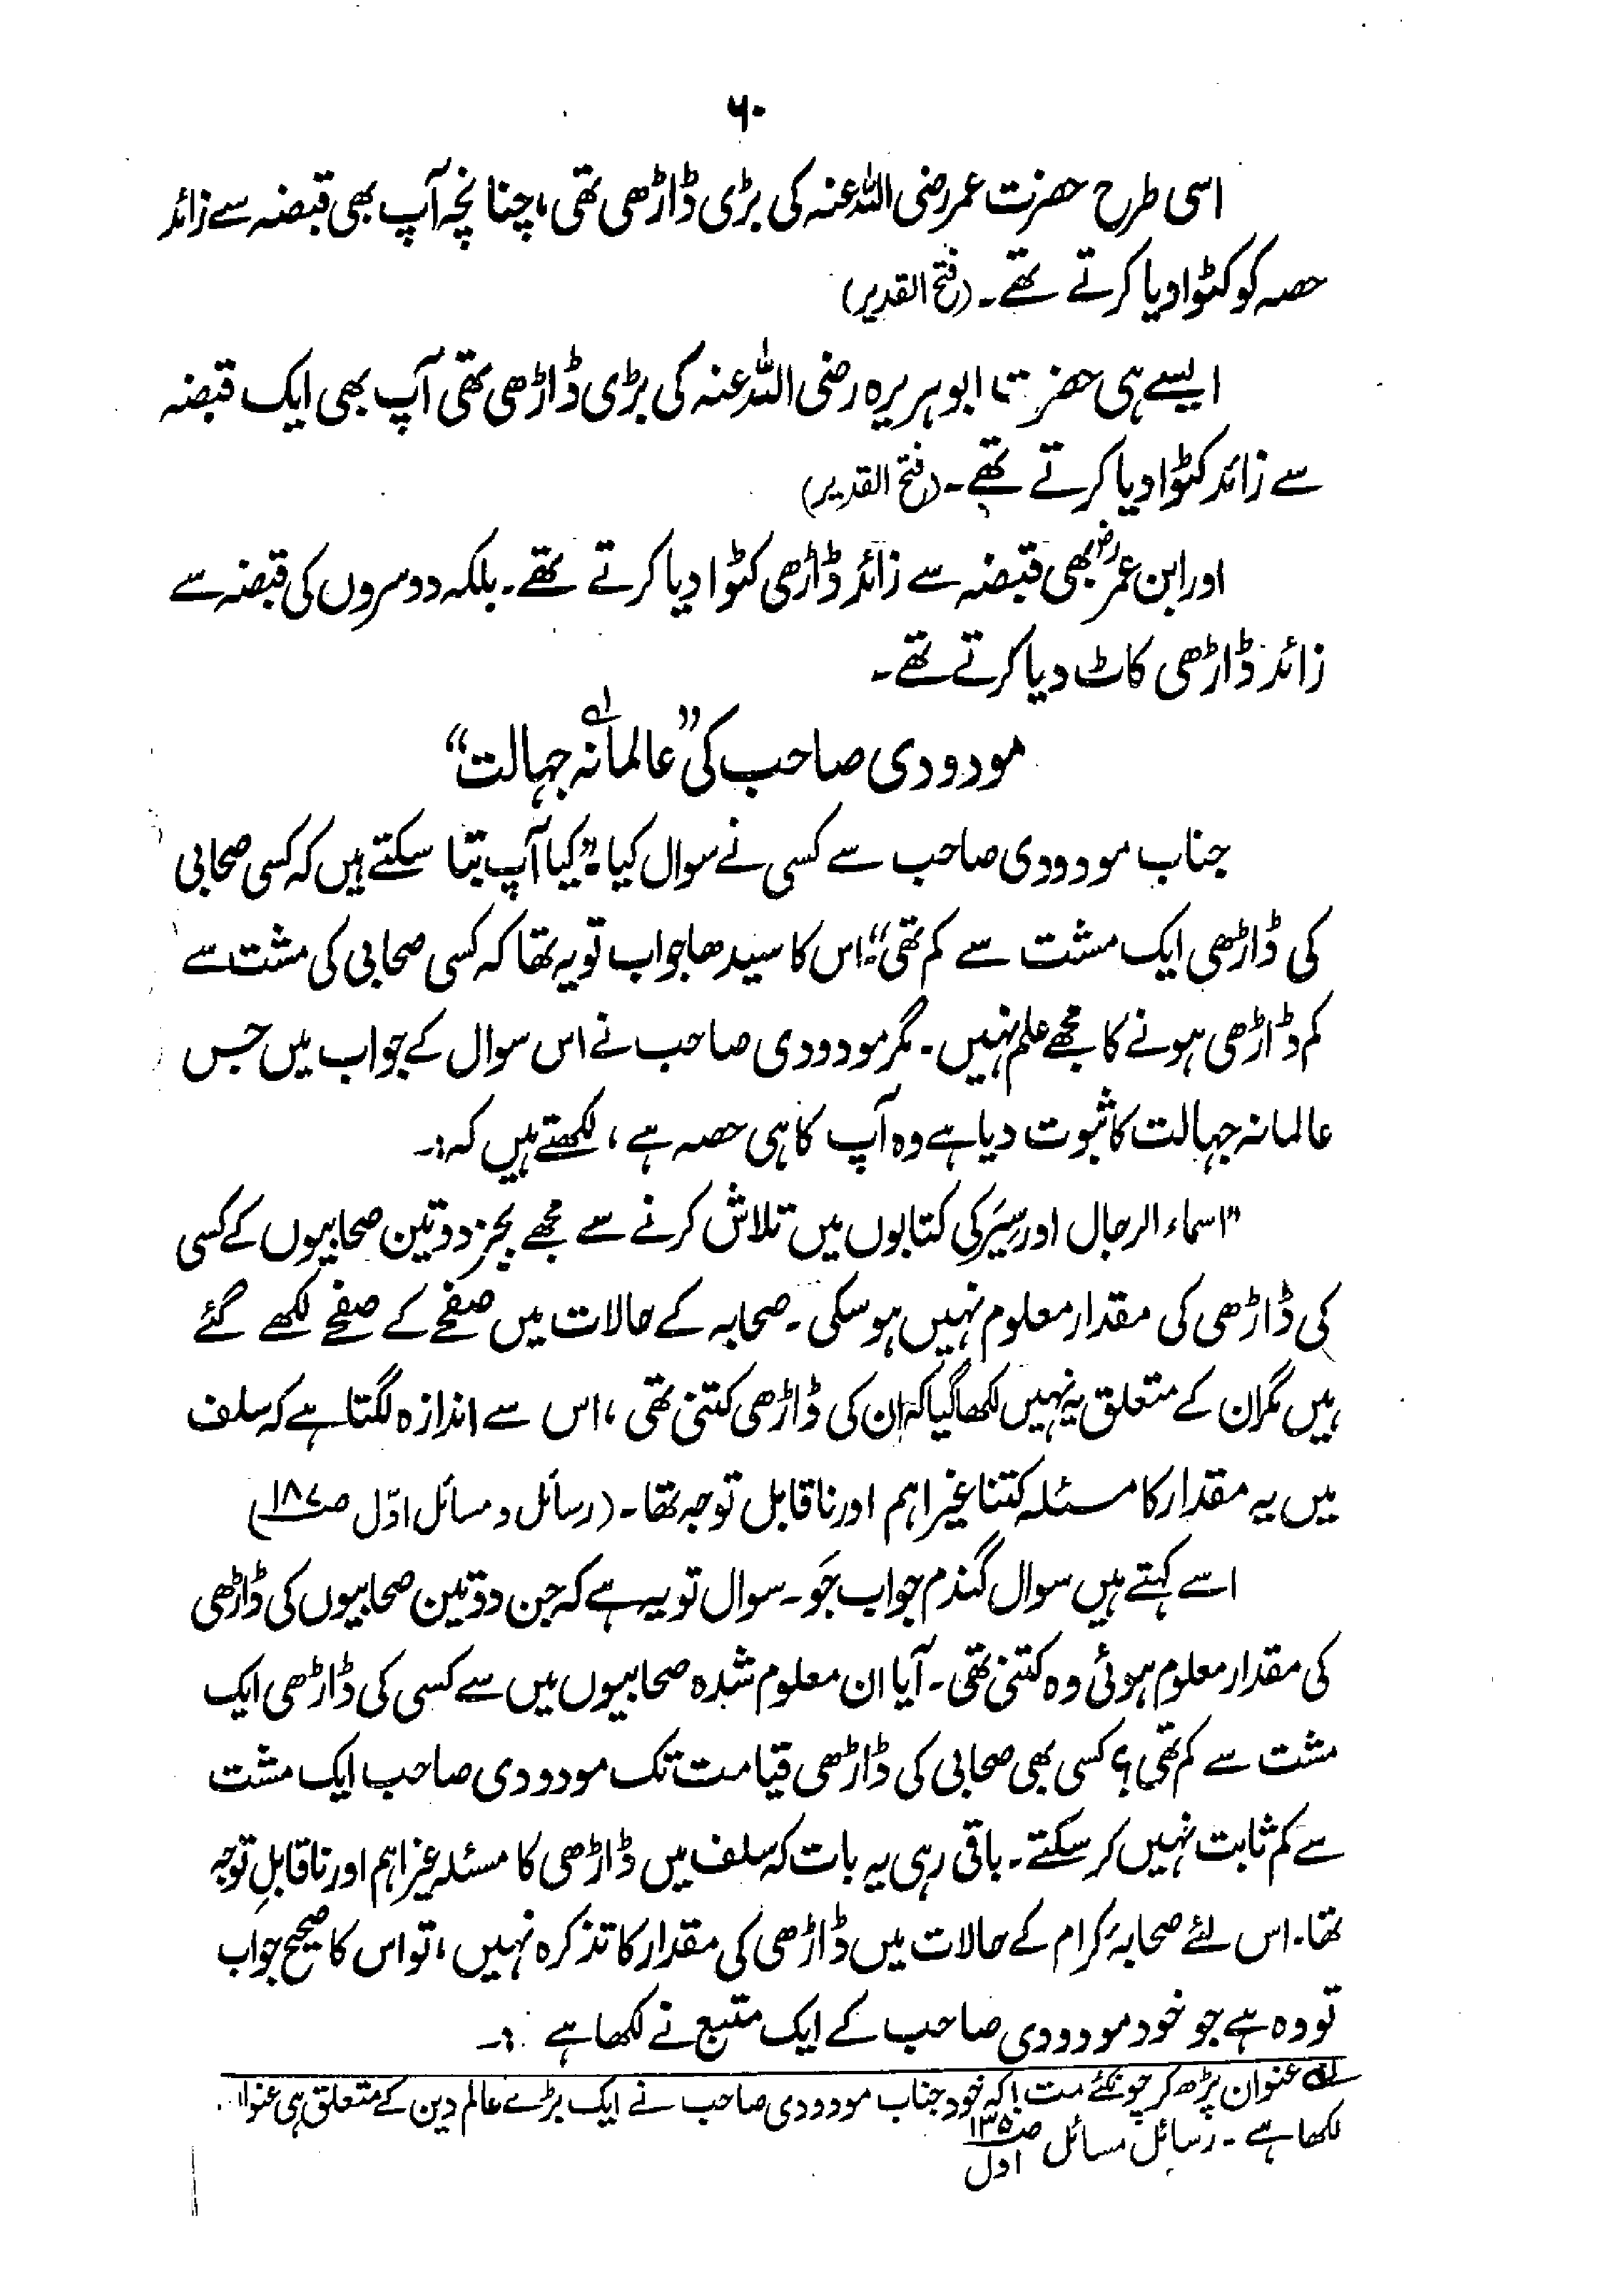 ۶۰
اسی طرح حضرت عمر رضی اللہ عنہ کی بڑی ڈاڑھی تھی، چنانچہ آپ بھی قبضہ سے زائد
حصہ کو کٹوا دیا کرتے تھے۔ (فتح القدیر)
ایسے ہی حضرت ابوہریرہ رضی اللہ عنہ کی بڑی ڈاڑھی تھی آپ بھی ایک قبضہ
سے زائد کٹوا دیا کرتے تھے۔ (فتح القدیر)
اور ابن عمرؓ بھی قبضہ سے زائد ڈاڑھی کٹوا دیا کرتے تھے۔ بلکہ دوسروں کی قبضہ سے
زائد ڈاڑھی کاٹ دیا کرتے تھے۔
مودودی صاحب کی ”عالمانہ جہالت“ لے
جناب مودودی صاحب سے کسی نے سوال کیا۔ ”کیا آپ بتا سکتے ہیں کہ کسی صحابی
کی ڈاڑھی ایک مشت سے کم تھی“؟ اس کا سیدھا جواب تو یہ تھا کہ کسی صحابی کی مشت سے
کم ڈاڑھی ہونے کا مجھے علم نہیں۔ مگر مودودی صاحب نے اس سوال کے جواب میں جس
عالمانہ جہالت کا ثبوت دیا ہے وہ آپ کا ہی حصہ ہے، لکھتے ہیں کہ:۔
”اسماء الرجال اور سِیَر کی کتابوں میں تلاش کرنے سے مجھے بجز دو تین صحابیوں کے کسی
کی ڈاڑھی کی مقدار معلوم نہیں ہو سکی۔ صحابہ کے حالات میں صفحے کے صفحے لکھے گئے
ہیں مگر ان کے متعلق یہ نہیں لکھا گیا کہ ان کی ڈاڑھی کتنی تھی، اس سے اندازہ لگتا ہے کہ سلف
میں یہ مقدار کا مسئلہ کتنا غیر اہم اور ناقابل توجہ تھا۔ (رسائل و مسائل اوّل ص۱۸۷)
اسے کہتے ہیں سوال گندم جواب جَو۔ سوال تو یہ ہے کہ جن دو تین صحابیوں کی ڈاڑھی
کی مقدار معلوم ہوئی وہ کتنی تھی۔ آیا ان معلوم شدہ صحابیوں میں سے کسی کی ڈاڑھی ایک
مشت سے کم تھی؟ کسی بھی صحابی کی ڈاڑھی قیامت تک مودودی صاحب ایک مشت
سے کم ثابت نہیں کر سکتے۔ باقی رہی یہ بات کہ سلف میں ڈاڑھی کا مسئلہ غیر اہم اور ناقابلِ توجہ
تھا۔ اس لئے صحابۂ کرام کے حالات میں ڈاڑھی کی مقدار کا تذکرہ نہیں، تو اس کا صحیح جواب
تو وہ ہے جو خود مودودی صاحب کے ایک متبع نے لکھا ہے :۔
لے عنوان پڑھ کر چونکئے مت! کہ خود جناب مودودی صاحب نے ایک بڑے عالم دین کے متعلق ہی عنوا
لکھا ہے۔ رسائل مسائل ص۱۳۵ اول